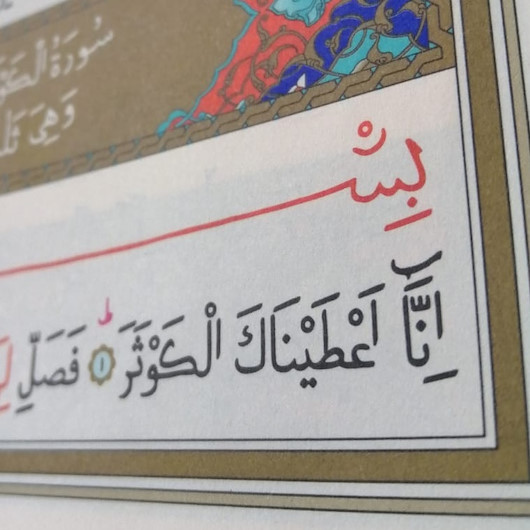 سُورَةُ الْكَوْ
وَهِيَ ثَلَ
بِسْ
اِنَّٓا اَعْطَيْنَاكَ الْكَوْثَرَ ۜ ١ فَصَلِّ لِ